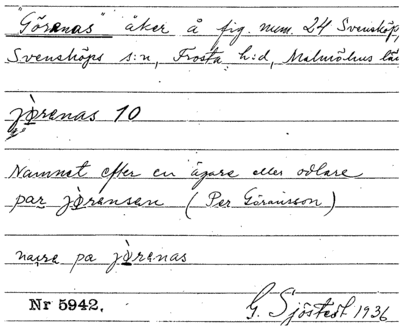 "Görenas" åker å fig. num. 24 Svensköp,
Svensköps s:n, Frosta h:d, Malmöhus län
jörenas 10
Namnet efter en ägare eller odlare
par jöransen (Per Göransson)
nạre pa jörenas
Nr 5942. G. Sjöstedt 1936